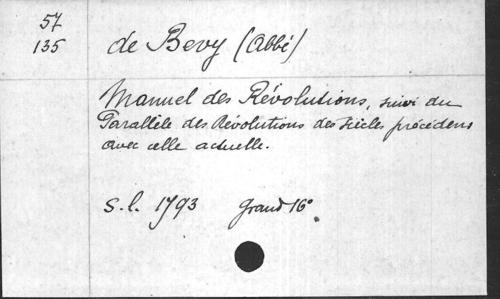 57
135
de Bevy (Abbé)
Manuel des Révolutions, suivi du
Parallèle des Révolutions des siècles précédens
avec celle actuelle.
s.l. 1793 Grand 16°